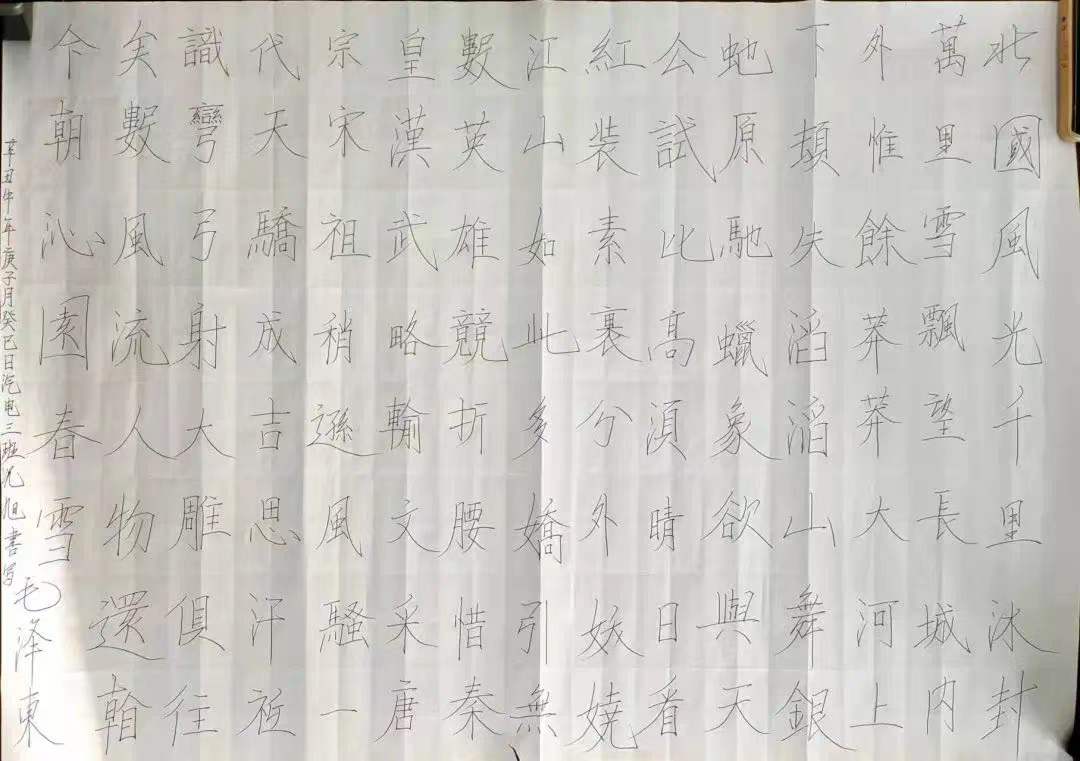 北國風光千里冰封
萬里雪飄望長城内
外惟餘莽莽大河上
下頓失滔滔山舞銀
虵原馳蠟象欲與天
公試比高湏晴日看
紅裝素裹分外妖嬈
江山如此多嬌引無
數英雄競折腰惜秦
皇漢武略輸文采唐
宗宋祖稍遜風騷一
代天驕成吉思汗衹
識彎弓射大雕俱往
矣數風流人物還
今朝沁園春雪
毛泽東
辛丑牛年庚子月癸巳日汽电三班尤旭書写